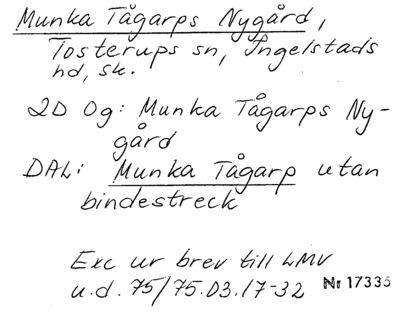 Munka Tågarps Nygård,
Tosterups sn, Ingelstads
hd, sk.
2D Og: Munka Tågarps Ny-
gård
DAL: Munka Tågarp utan
bindestreck
Exc ur brev till LMV
u.d. 75/75.03.17-32 Nr 17335